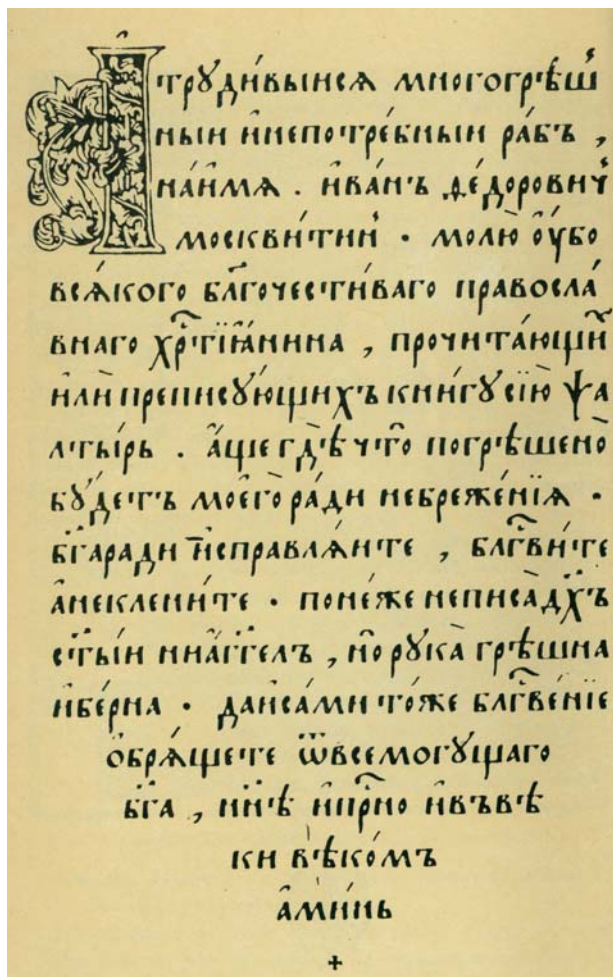 И҆трꙋди́выисѧ многогрѣ́ш
ныи и҆непотре́бныи ра́бъ ,
на́имѧ . и҆ва́нъ ѳе́доровичь
москви́тинъ . молю̀ ѹ҆́бо
всѧ́кого бл҃гочести́ваго правосла́
внаго хрⷭ҇тїа́нина , прочита́ющи
и҆лѝ преписꙋ́ющихъ кни́гꙋ сїю̀ ѱа
лты́рь . а҆́ще гдѣ̀ что̀ погрѣшено̀
бꙋ́детъ моего̀ ра́ди небреже́нїѧ .
бг҃аради и҆справлѧ́ите , блгⷭ҇ви́те
а҆неклени́те . поне́же неписа̀ дх҃ъ
ст҃ы́и ниа҆́гг҃елъ , но̀ рꙋка̀ грѣ́шна
и҆бе́рна . даи҆са́ми то́же блгⷭ҇ве́нїе
о҆брѧ́щете ѿвсемогꙋ́щаго
бг҃а , нн҃ѣ и҆прⷭ҇но и҆въвѣ́
ки вѣко́мъ
а҆ми́нь